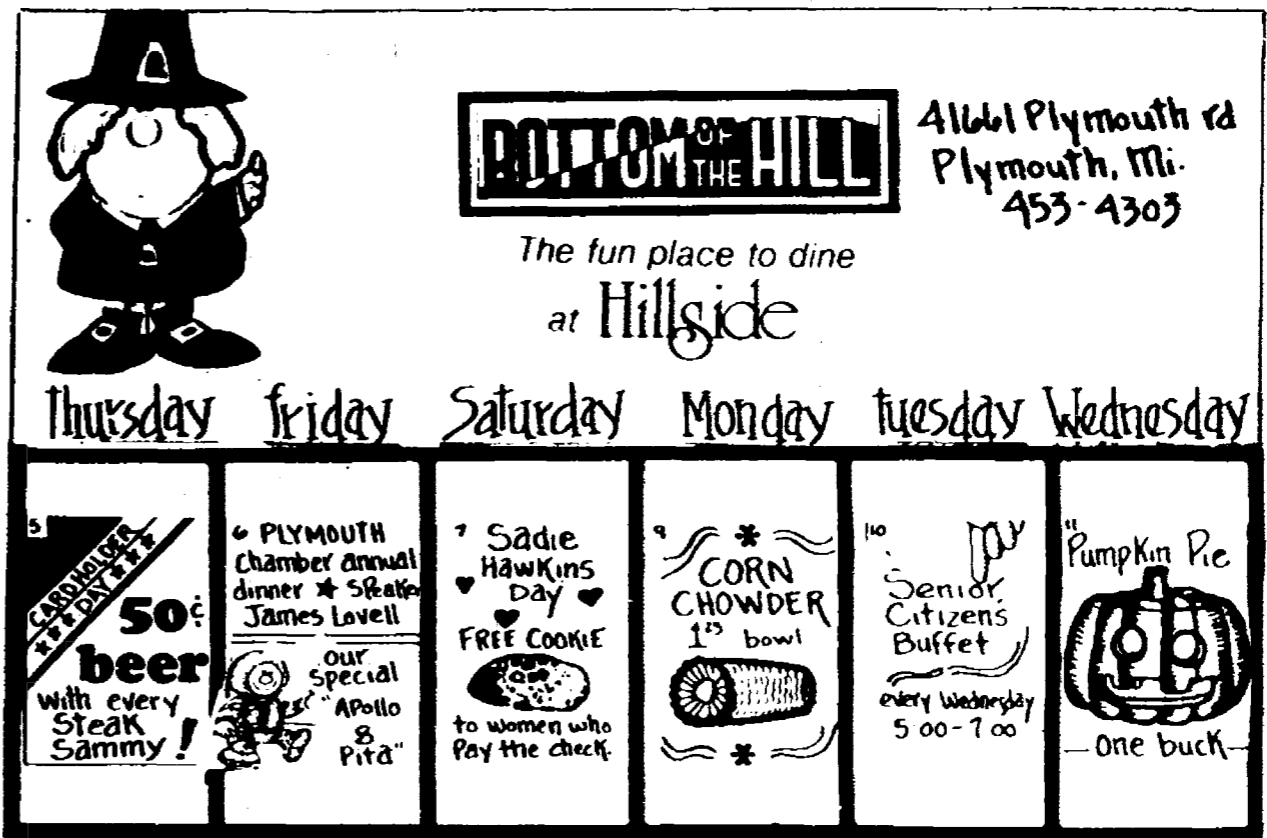 BOTTOM OF THE HILL
41661 Plymouth rd
Plymouth, Mi.
453-4303
The fun place to dine
at Hillside
thursday friday Saturday Monday tuesday Wednesday
5
CARDHOLDER
DAY
50¢
beer
with every
Steak
Sammy!
6 PLYMOUTH
Chamber annual
dinner ★ Speaker
James Lovell
our
Special
"Apollo
8
Pita"
7 Sadie
Hawkins
Day
FREE COOKIE
to women who
Pay the check.
9
CORN
CHOWDER
1.25 bowl
10
Senior
Citizens
Buffet
every Wednesday
5:00-7:00
11
Pumpkin Pie
one buck